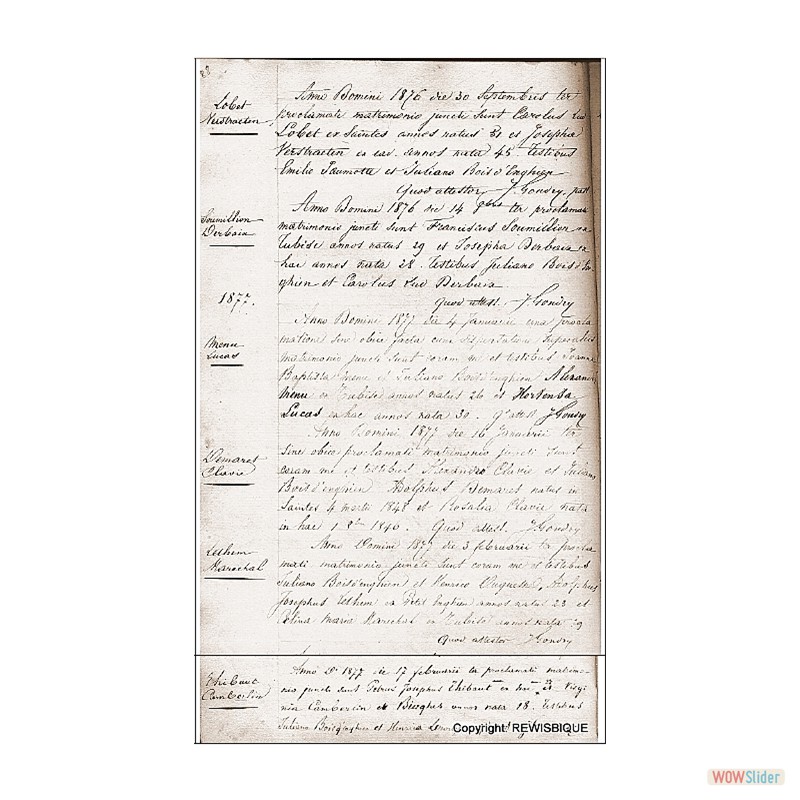 Lobet
Verstraeten
Anno Domini 1876 die 30 Septembris ter
proclamati matrimonio juncti sunt Carolus
Lobet ex Saintes annos natus 31 et Josepha
Verstraeten ex ead. annos nata 45. Testibus
Emilio Paumotte et Juliano Boisd'Enghien
Quod attestor J. Gondry, past
Soumillion
Derbaix
Anno Domini 1876 die 14 8bris ter proclamati
matrimonio juncti sunt Franciscus Soumillion ex
Tubise annos natus 29 et Josepha Derbaix ex
hac annos nata 28. Testibus Juliano Boisd'En
ghien et Carolus Lud Derbaix
Quod attest. J. Gondry
1877.
Menu
Lucas
Anno Domini 1877 die 4 Januarii una procla
matione sine obice facta cum dispensatione super aliis
matrimonio juncti sunt coram me et testibus Joanne
Baptista Menu et Juliano Boisd'enghien Alexander
Menu ex Tubise annos natus 26 et Hortensia
Lucas ex hac annos nata 30. Q. att. J Gondry
Demaret
Clavie
Anno Domini 1877 die 16 Januarii ter
sine obice proclamati matrimonio juncti sunt
coram me et testibus Alexandro Clavie et Juliano
Boisd'enghien Adolphus Demaret natus in
Saintes 4 martii 1848 et Rosalia Clavie nata
in hac 1 8bris 1840. Quod attest. J. Gondry
Lethem
Marechal
Anno Domini 1877 die 3 februarii ter procla
mati matrimonio juncti sunt coram me et testibus
Juliano Boisd'enghien et Henrico Duquesne, Adolphus
Josephus Lethem ex Petit Enghien annos natus 23 et
Celina Maria Marechal ex Tubise annos nata 29
Quod attestor J Gondry
Thibaut
Camberlin
Anno D. 1877 die 17 februarii ter proclamati matrimo-
nio juncti sunt Petrus Josephus Thibaut ex hac 23 Virgi
nia Camberlin ex Bierghes annos nata 18. Testibus
Juliano Boisd'enghien et Henrico
Copyright: REWISBIQUE
WOWSlider